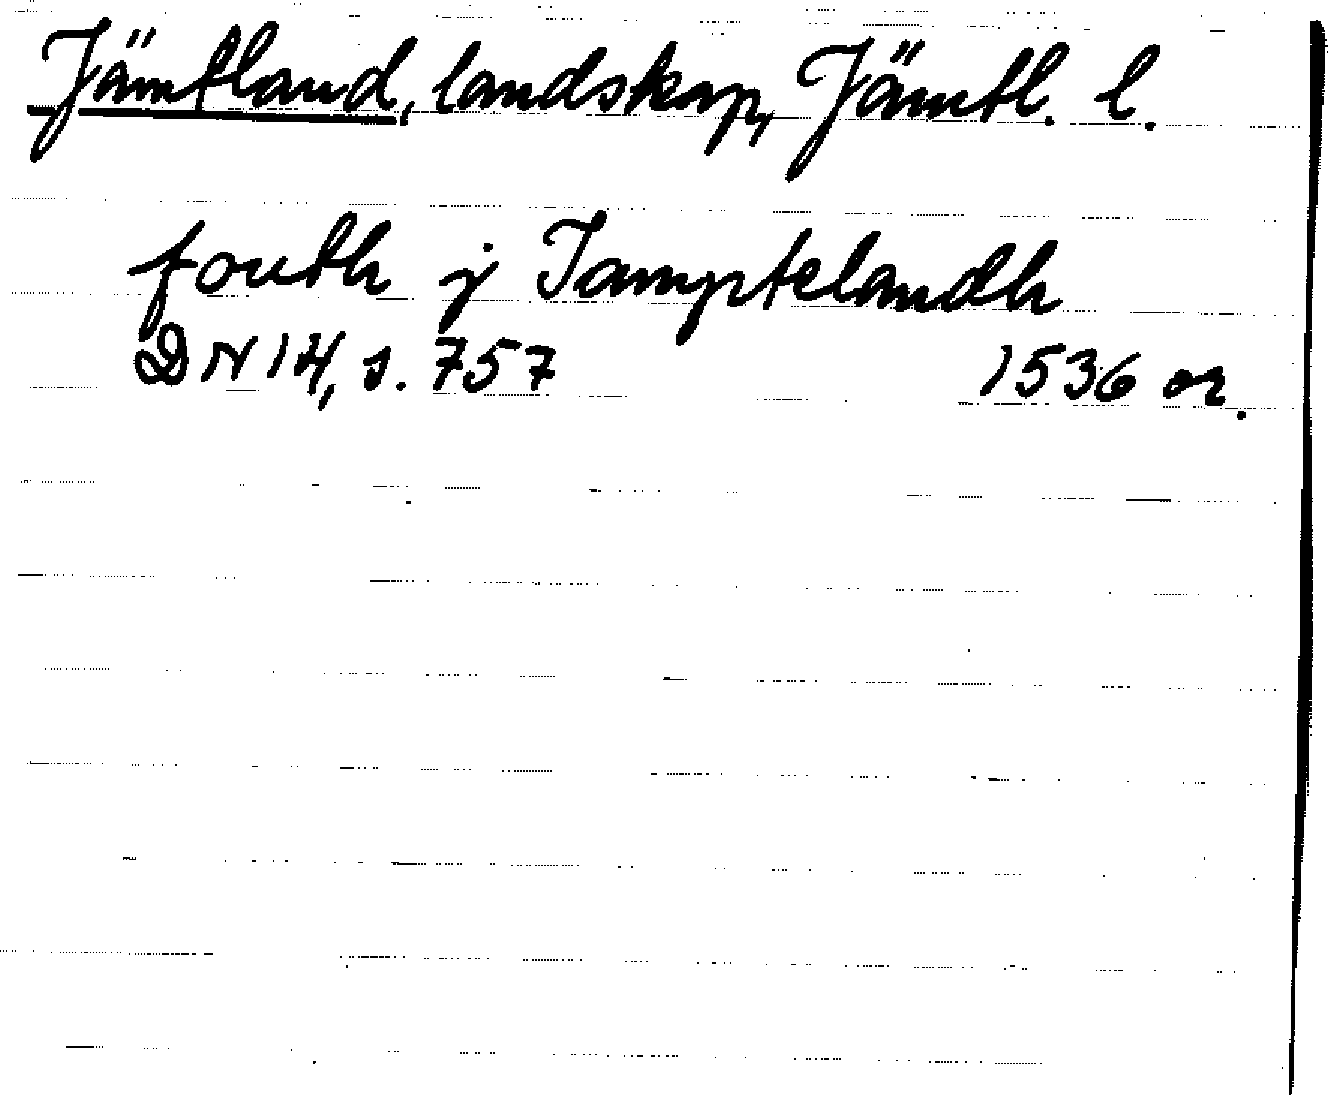 Jämtland, landskap, Jämtl. l.
fouth j Jamptelandh
DN 14, s. 757 1536 or.